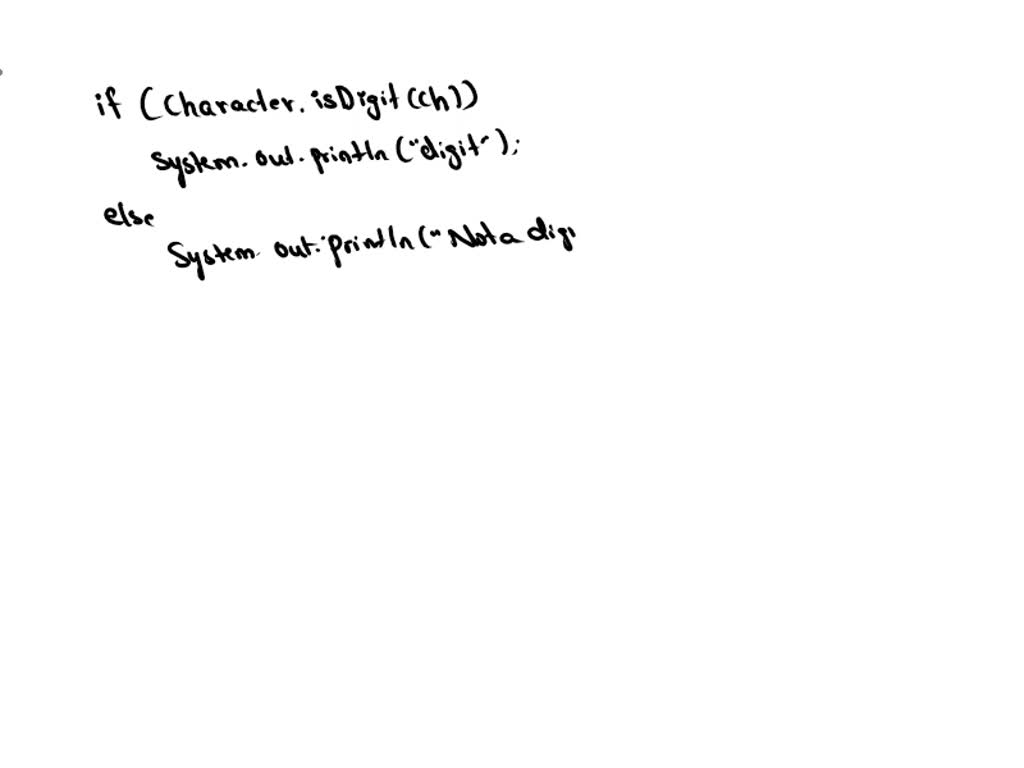 if (Character.isDigit(ch))
System.out.println("digit");
else
System.out.println("Not a digi